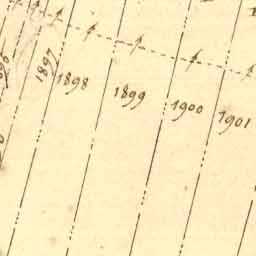 1897
1898
1899
1900
1901